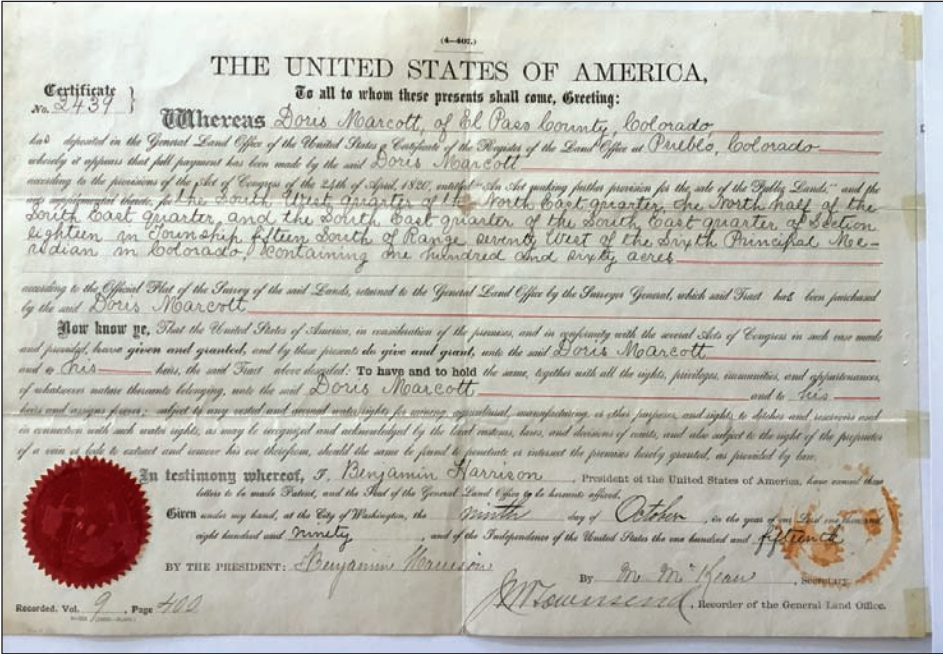 (4—407.)
THE UNITED STATES OF AMERICA,
Certificate
No. 2439
To all to whom these presents shall come, Greeting:
Whereas Doris Marcott, of El Paso County, Colorado,
has deposited in the General Land Office of the United States a Certificate of the Register of the Land Office at Pueblo, Colorado
whereby it appears that full payment has been made by the said Doris Marcott
according to the provisions of the Act of Congress of the 24th of April, 1820, entitled "An Act making further provision for the sale of the Public Lands," and the
acts supplemental thereto, for the South West quarter of the North East quarter, the North half of the
South East quarter, and the South East quarter of the South East quarter of Section
eighteen in Township fifteen South of Range seventy West of the Sixth Principal Me-
ridian in Colorado, containing one hundred and sixty acres
according to the Official Plat of the Survey of the said Lands, returned to the General Land Office by the Surveyor General, which said Tract has been purchased
by the said Doris Marcott
Now know ye, That the United States of America, in consideration of the premises, and in conformity with the several Acts of Congress in such case made
and provided, have given and granted, and by these presents do give and grant, unto the said Doris Marcott
and to his heirs, the said Tract above described: To have and to hold the same, together with all the rights, privileges, immunities, and appurtenances,
of whatsoever nature thereunto belonging, unto the said Doris Marcott and to his
heirs and assigns forever; subject to any vested and accrued water rights for mining, agricultural, manufacturing, or other purposes, and rights to ditches and reservoirs used
in connection with such water rights, as may be recognized and acknowledged by the local customs, laws, and decisions of courts, and also subject to the right of the proprietor
of a vein or lode to extract and remove his ore therefrom, should the same be found to penetrate or intersect the premises hereby granted, as provided by law.
In testimony whereof, I, Benjamin Harrison, President of the United States of America, have caused these
letters to be made Patent, and the Seal of the General Land Office to be hereunto affixed.
Given under my hand, at the City of Washington, the ninth day of October, in the year of our Lord one thousand
eight hundred and ninety, and of the Independence of the United States the one hundred and fifteenth
BY THE PRESIDENT: Benjamin Harrison
By M. McKean, Secretary.
J M Townsend, Recorder of the General Land Office.
Recorded, Vol. 9, Page 400